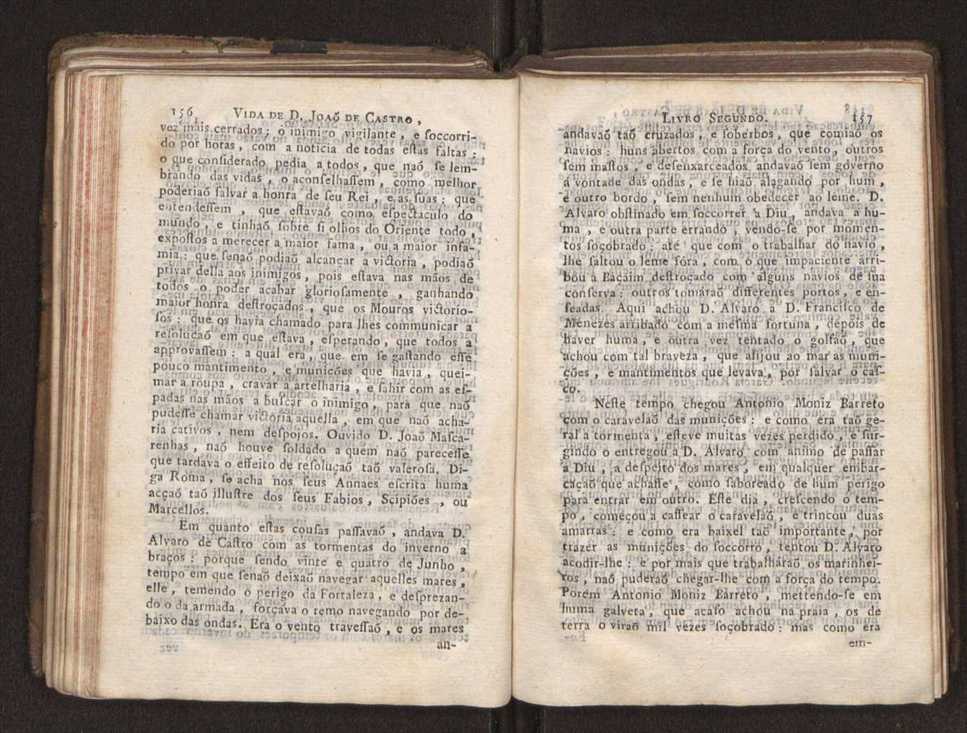 156 VIDA DE D. JOAÕ DE CASTRO,
vez mais cerrados; o inimigo vigilante, e ſoccorri-
do por horas, com a noticia de todas eſtas faltas:
o que conſiderado pedia a todos, que naõ ſe lem-
brando das vidas, o aconſelhaſſem, como melhor
poderiaõ ſalvar a honra de ſeu Rei, e as ſuas: que
entendeſſem, que eſtavaõ como eſpectaculo do
mundo, e tinhaõ ſobre ſi olhos do Oriente todo,
expoſtos a merecer a maior fama, ou a maior infa-
mia: que ſenaõ podiaõ alcançar a victoria, podiaõ
privar della aos inimigos, pois eſtava nas mãos de
todos o poder acabar glorioſamente, ganhando
maior honra deſtroçados, que os Mouros victorio-
ſos: que os havia chamado para lhes communicar a
reſoluçaõ em que eſtava, eſperando, que todos a
approvaſſem: a qual era, que em ſe gaſtando eſſe
pouco mantimento, e munições que havia, quei-
mar a roupa, cravar a artelharia, e ſahir com as eſ-
padas nas mãos a buſcar o inimigo, para que naõ
pudeſſe chamar victoria aquella, em que naõ acha-
ria cativos, nem deſpojos. Ouvido D. Joaõ Maſca-
renhas, naõ houve ſoldado a quem naõ pareceſſe
que tardava o effeito de reſoluçaõ taõ valeroſa. Di-
ga Roma, ſe acha nos ſeus Annaes eſcrita huma
acçaõ taõ illuſtre dos ſeus Fabios, Scipiões, ou
Marcellos.
Em quanto eſtas couſas paſſavaõ, andava D.
Alvaro de Caſtro com as tormentas do inverno a
braços: porque ſendo vinte e quatro de Junho,
tempo em que ſenaõ deixaõ navegar aquelles mares,
elle, temendo o perigo da Fortaleza, e deſprezan-
do o da armada, forçava o remo navegando por de-
baixo das ondas. Era o vento traveſſaõ, e os mares
an-
LIVRO SEGUNDO. 157
andavaõ taõ cruzados, e ſoberbos, que comiaõ os
navios: huns abertos com a força do vento, outros
ſem maſtos, e deſenxarceados andavaõ ſem governo
á vontade das ondas, e ſe hiaõ alagando por hum,
e outro bordo, ſem nenhum obedecer ao leme. D.
Alvaro obſtinado em ſoccorrer a Diu, andava a hu-
ma, e outra parte errando, vendo-ſe por momen-
tos ſoçobrado: até que com o trabalhar do navio,
lhe ſaltou o leme fóra, com o que impaciente arri-
bou a Bacaim deſtroçado com alguns navios de ſua
conſerva: outros tomaraõ differentes portos, e en-
ſeadas. Aqui achou D. Alvaro a D. Franciſco de
Menezes arribado com a meſma fortuna, depois de
haver huma, e outra vez tentado o golfaõ, que
achou com tal braveza, que alijou ao mar as muni-
ções, e mantimentos que levava, por ſalvar o caſ-
co.
Neſte tempo chegou Antonio Moniz Barreto
com o caravelaõ das munições: e como era taõ ge-
ral a tormenta, eſteve muitas vezes perdido, e ſur-
gindo o entregou a D. Alvaro com animo de paſſar
a Diu, a deſpeito dos mares, em qualquer embar-
caçaõ que achaſſe, como ſaboreado de hum perigo
para entrar em outro. Eſte dia, creſcendo o tem-
po, começou a caſſear o caravelaõ, e trincou duas
amarras: e como era baixel taõ importante, por
trazer as munições do ſoccorro, tentou D. Alvaro
acodir-lhe: e por mais que trabalharaõ os marinhei-
ros, naõ puderaõ chegar-lhe com a força do tempo.
Porém Antonio Moniz Barreto, mettendo-ſe em
huma galveta, que acaſo achou na praia, os de
terra o viraõ mil vezes ſoçobrado: mas como era
em-